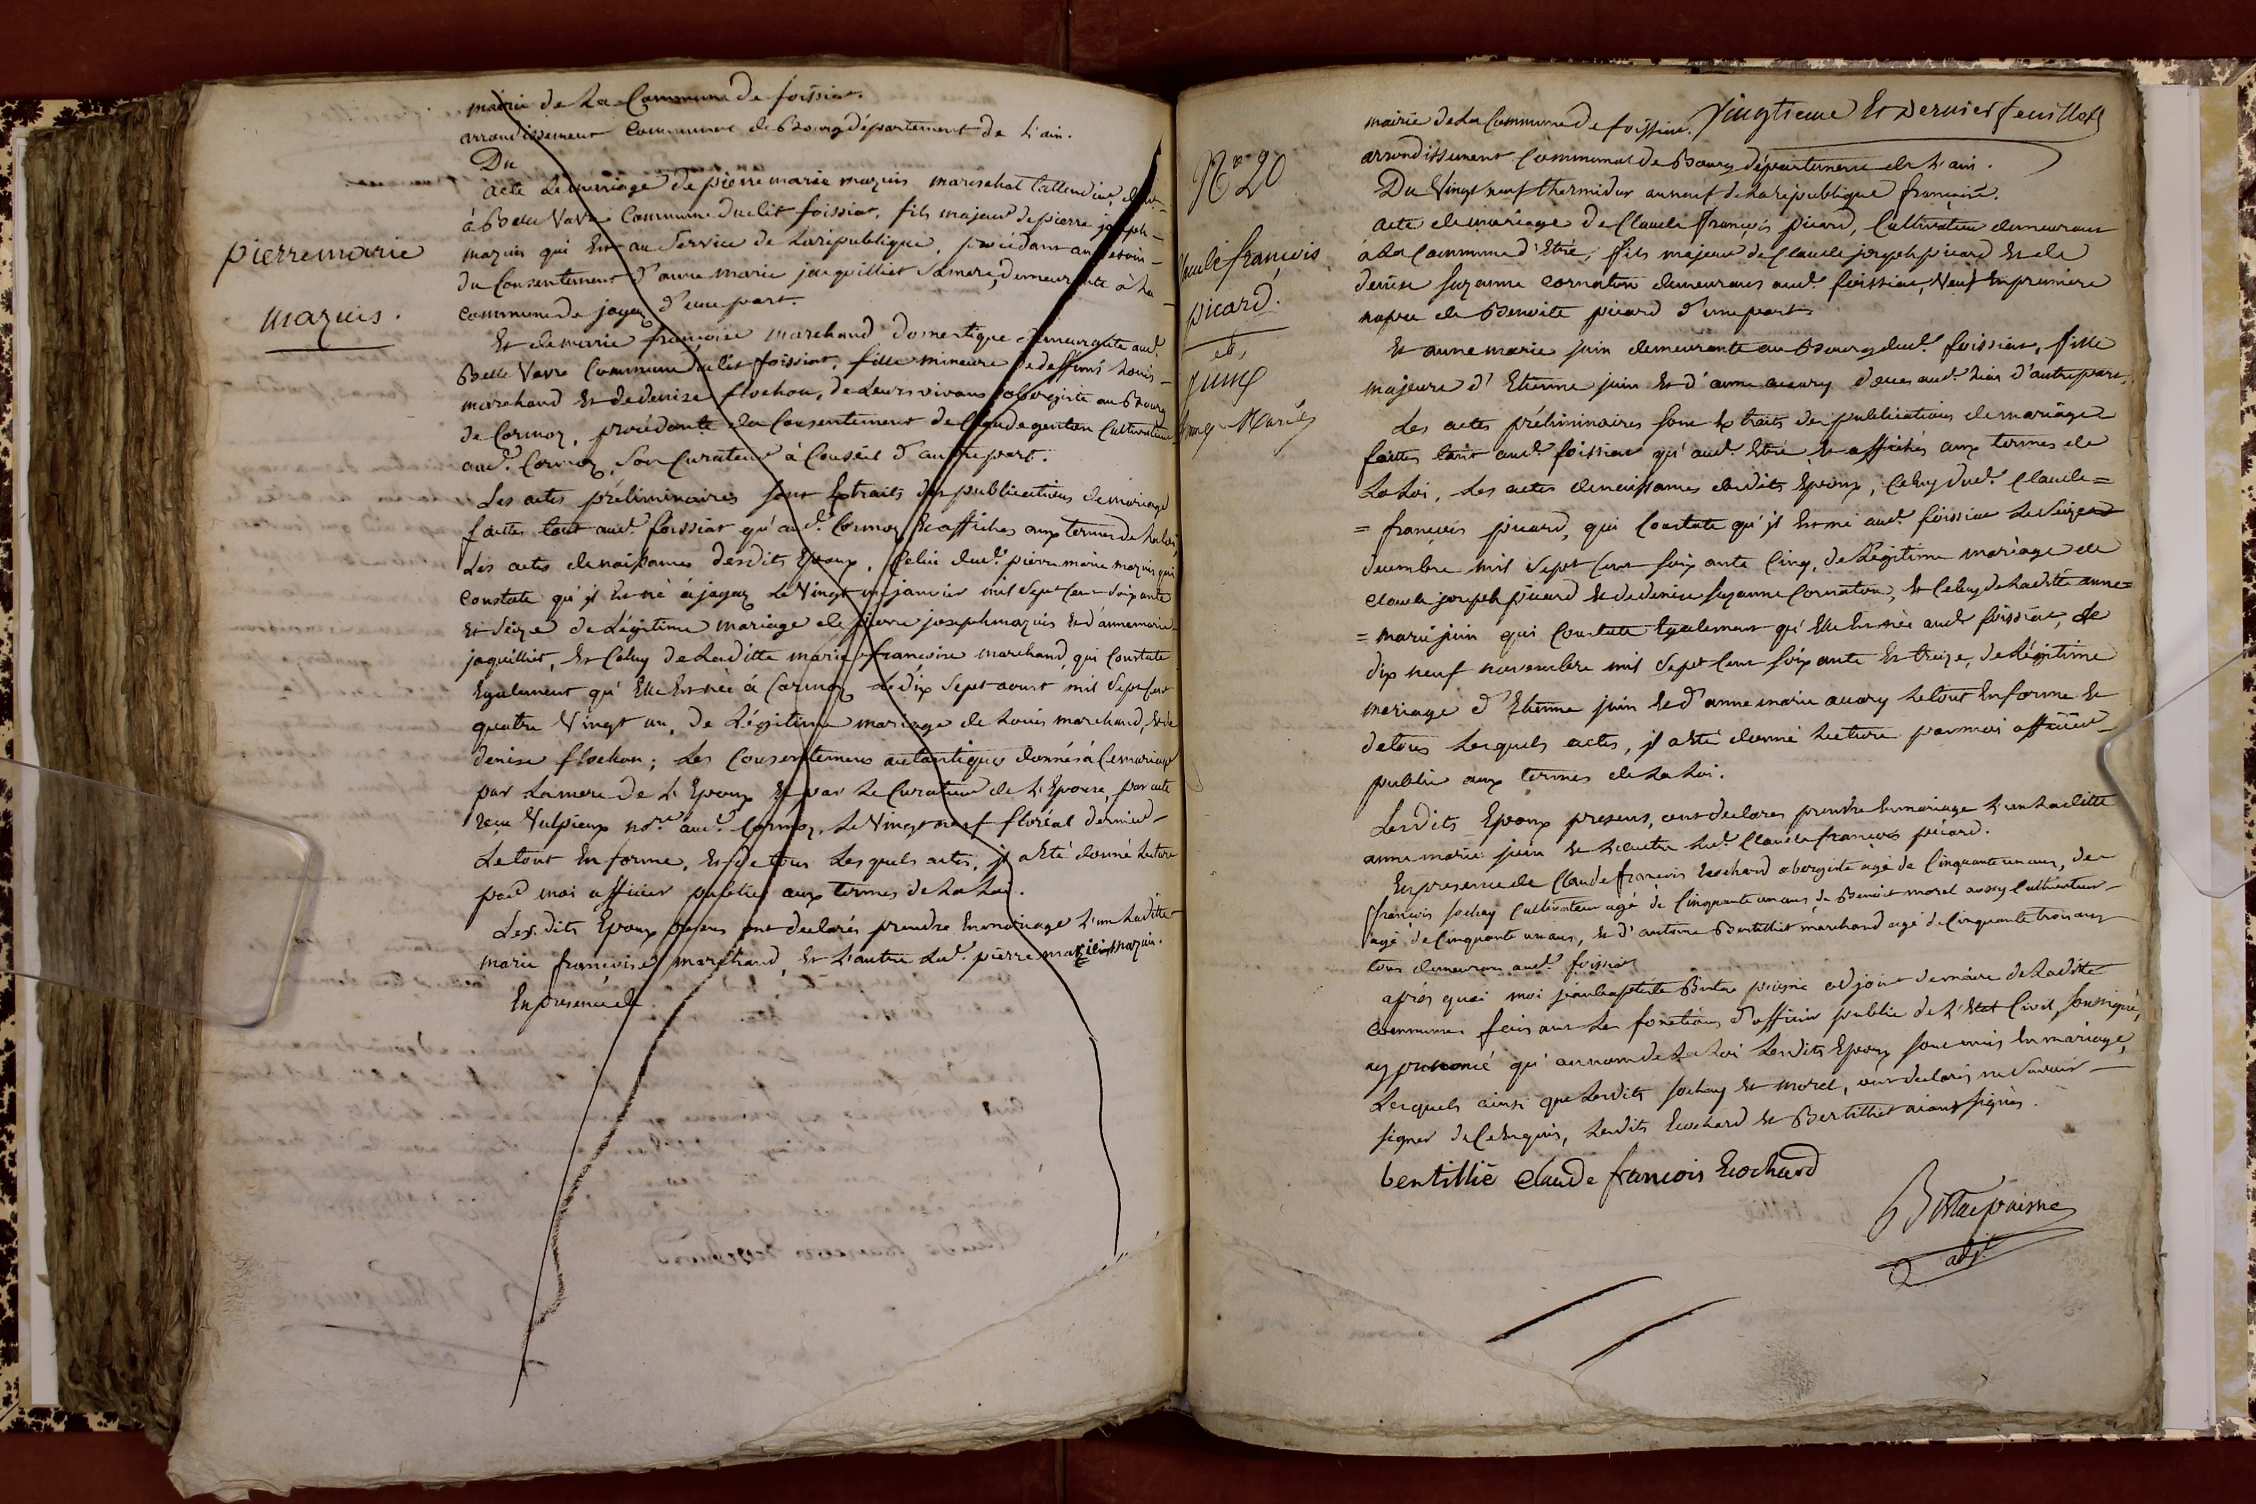 mairie de La Commune de foissiat.
arrondissement Communal de Bourg département de L'ain.
Du
acte de mariage de pierre marie mazuis mareschal tallendier, dem.t
à Belle Vavre Commune dudit foissiat, fils majeur de pierre joseph
mazuis qui Est au Service de La république, procédant au besoin
du Consentement d'anne marie jaquilliet Sa mere, demeurante à la
commune de jayaz d'une part.
Et de marie françoise marchand domestique demeurante aud.
Belle Vavre Commune dudit foissiat, fille mineure de deffunts Louis
marchand et de denise flochon, de Leurs vivans obergiste au Bourg
de Cormoz, procédante du Consentement de Claude genton Cultivateur
aud. Cormoz, Son Curateur à Conseil d'autre part.
Les actes préliminaires sont Extraits des publications de mariage
faittes tant aud. foissiat qu'aud. Cormoz Et affichés aux termes de La Loi,
Les actes de naissances desdits Epoux, Celui dud. pierre marie mazuis qui
constate qu'il Est né à jayaz Le Vingt un janvier mil Sept Cent Soixante
et Seize de Légitime mariage de pierre joseph mazuis Et d'anne marie
jaquilliet, Et Celuy de Laditte marie françoise marchand, qui Constate
Egalement qu'Elle Est née à Cormoz Le dix Sept aoust mil Sept Cent
quatre Vingt un, de Légitime mariage de Louis marchand, Et de
denise flochon; Les Consentemens autantiques donnés à Ce mariage
par La mere de L'Epoux Et par Le Curateur de L'Epouse, par acte
reçu Vulpieux no.re aud. Cormoz, Le Vingt neuf floréal dernier
Le tout En forme, Et de tous Lesquels actes, il a Eté donné Lecture
par moi officier public aux termes de La Loi.
Lesdits Epoux présens ont declarés prendre En mariage L'un Laditte
marie françoise marchand, Et L'autre Led. pierre marie mazuis.
En presence de
pierre marie
mazuis.
Vingtieme Et Dernier feuillet
mairie de La Commune de foissiat.
arrondissement Communal de Bourg département de L'ain.
N° 20
Du Vingt neuf thermidor an neuf de La république française.
acte de mariage de Claude françois picard, Cultivateur demeurant
à La Commune d'Etré, fils majeur de Claude joseph picard Et de
denise suzanne cornaton demeurans aud. foissiat, Veuf En premiere
nopce de Benoite picard d'une part.
Et anne marie juin demeurante au Bourg dud. foissiat, fille
majeure d'Etienne juin Et d'anne auary d'eux aud. Lieu d'autre part.
Les actes préliminaires sont Extraits des publications de mariage
faittes tant aud. foissiat qu'aud. Etré Et affichés aux termes de
La Loi, Les actes de naissances desdits Epoux, Celuy dud. Claude=
=françois picard, qui Constate qu'il Est né aud. foissiat Le Seize
decembre mil Sept Cent soixante Cinq, de Légitime mariage de
claude joseph picard Et de denise suzanne Cornaton, Et Celuy de Laditte anne=
=marie juin qui Constate Egalement qu'Elle Est née aud. foissiat, Le
dix neuf novembre mil Sept Cent soixante Et treize, de Légitime
mariage d'Etienne juin Et d'anne marie auary Le tout En forme Et
de tous Lesquels actes, il a Eté donné Lecture par moi officier
public aux termes de La Loi.
Lesdits Epoux presens, ont declarés prendre En mariage L'un Laditte
anne marie juin Et L'autre Led. Claude françois picard.
En presence de Claude françois Ecochard obergiste agé de Cinquante un ans, de
françois sochay Cultivateur agé de Cinquante un ans, de Benoit morel aussy Cultivateur
agé de Cinquante un ans, Et d'antoine Bentilliet marchand agé de Cinquante trois ans
tous demeurans aud. foissiat
après quoi moi jean baptiste Buttae puisné adjoint de maire de Laditte
Commune faisant Les fonctions d'officier public de L'Etat Civil soussigné,
ay prononcé qu'au nom de La Loi Lesdits Epoux sont unis En mariage,
Lesquels ainsi que Lesdits sochay Et morel, ont declarés ne Savoir
signer de Ce Enquis, Lesdits Ecochard Et Bertilliet aians signés.
bentillié claude francois Ecochard
puisne
adj.t
Claude françois
picard.
et
juin
Anne Marie